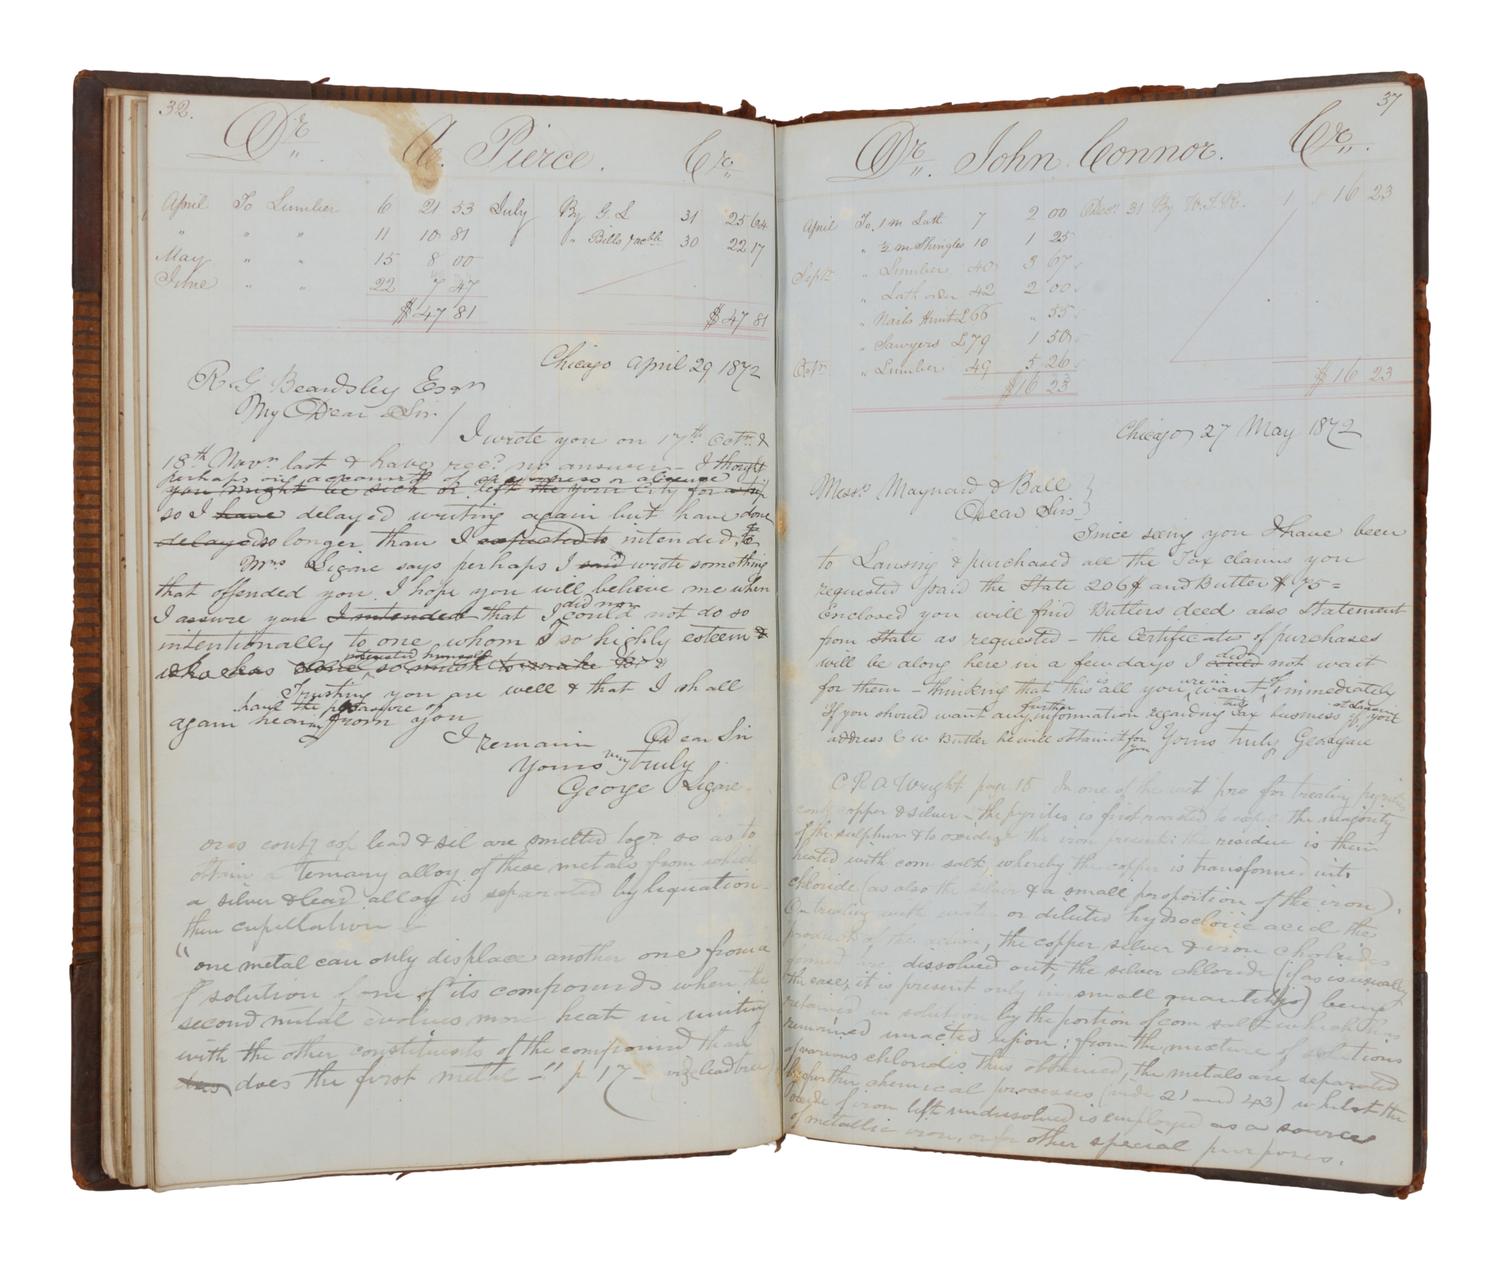 32.
Dr. A. Pierce. Cr.
April To Lumber 6 21 53 July By G. L 31 25 64
" " " 11 10 81 " Bills 30 22 17
May " " 15 8 00
June " " 22 7 47
$47 81 $47 81
Chicago April 29 1872
R. G Beardsley Esqr
My Dear Sir /
I wrote you on 17th Octr. &
18th Novr last & have recd no answer - I thought
perhaps on account of or absence
you might be sick or left the your City for a trip
so I have delayed writing again but have done
delayed so longer than I expected to intended
Mrs Ligare says perhaps I said wrote something
that offended you. I hope you will believe me when
I assure you I intended that I could did not do so
intentionally to one whom I so highly esteem &
who has so much interested himself to make
Trusting you are well & that I shall
have the pleasure of
again hearing from you
I remain Dear Sir
Yours very truly
George Ligare
ores contg cop lead & sil are smelted togr so as to
obtain a ternary alloy of these metals from which
a silver & lead alloy is separated by liquation
then cupellation
"one metal can only displace another one from a
solution of one of its compounds when the
second metal evolves more heat in uniting
with the other constituents of the compound than
does the first metal -" p 17 - lead tree
37
Dr. John Connor. Cr.
April To 1 m Lath 7 2 00 Decr. 31 By 1 16 23
" ½ m Shingles 10 1 25
Septr " Lumber 40 3 67
" Lath 42 2 00
" Nails Hunt L 66 " 55
" Sawyers L 79 1 50
Octr " Lumber 49 5 26
$16 23 $16 23
Chicago 27 May 1872
Messrs Maynard & Ball
Dear Sirs
Since seeing you I have been
to Lansing & purchased all the Tax claims you
requested paid the State 206 and Butler $75=
Enclosed you will find Butlers deed also Statement
from State as requested - the Certificates of purchases
will be along here in a few days I did not wait
for them - thinking that this is all you were in want of immediately
If you should want any further information regarding this Tax business if you
address C W Butler he will obtain it for you Yours truly Geo Ligare
C R A Wright page 15 In one of the wet pro for treating pyrites
contg copper & silver - the pyrites is first roasted to expel the majority
of the sulphur & to oxidize the iron present: the residue is then
heated with com salt, whereby the copper is transformed into
chloride (as also the silver & a small proportion of the iron).
On treating with water or diluted hydrocloric acid the
products of the action, the copper silver & iron chlorides
formed are dissolved out, the silver chloride (if as is usually
the case, it is present only in small quantity) being
retained in solution by the portion of com salt which has
remained unacted upon: from the mixture of solutions
of various chlorides thus obtained, the metals are separated
by further chemical processes (vide 21 and 43) whilst the
oxide of iron left undissolved is employed as a source
of metallic iron, or for other special purposes.